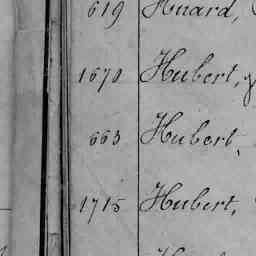 619 Huard,
1670 Hubert,
663 Hubert,
1715 Hubert,